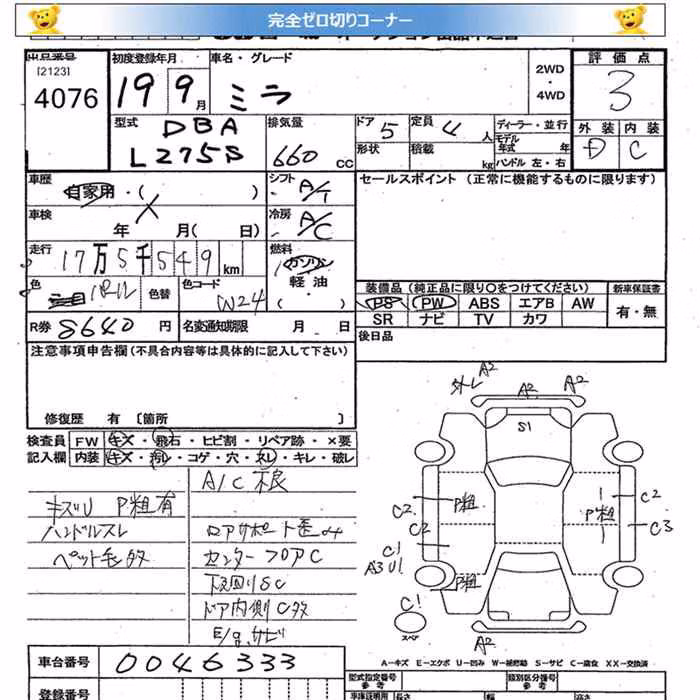 完全ゼロ切りコーナー
出品番号
[2123]
4076
初度登録年月
19 9月
車名・グレード
ミラ
2WD
・
4WD
評価点
3
外装 内装
D C
型式
DBA
L275S
排気量
660 CC
ドア 5
形状
定員 4 人
積載 kg
ディーラー・並行
モデル
年式 年
ハンドル 左・右
車歴
自家用・( )
車検
年 X 月( 日)
走行
17万5千549km
シフト
A/T
冷房
A/C
燃料
ガソリン
軽油
( )
セールスポイント (正常に機能するものに限ります)
色
パール
色替
色コード
W24
装備品(純正品に限り○をつけてください)
PS PW ABS エアB AW
SR ナビ TV カワ
新車保証書
有・無
R券 8640 円
名変通知期限 月 日
後日品
注意事項申告欄(不具合内容等は具体的に記入して下さい)
修復歴 有 〔箇所 〕
検査員
記入欄
FW キズ・飛石・ヒビ割・リペア跡・×要
内装 キズ・汚レ・コゲ・穴・スレ・キレ・破レ
キズU P粗有
ハンドルスレ
ペット毛多
A/C不良
コアサポート歪み
センターフロアC
下廻りSC
ドア内側C多
E/gサビ
外レA2
A2
A2
S1
C2
P粗
C2
C1
A3U1
P粗
C1
スペア
P粗
C2
C3
A2
A-キズ E-エクボ U-凹み W-補修跡 S-サビ C-腐食 XX-交換済
車台番号
0046333
登録番号
型式指定番号
参考
類別区分番号
参考
車庫証明用
長さ
幅
高さ